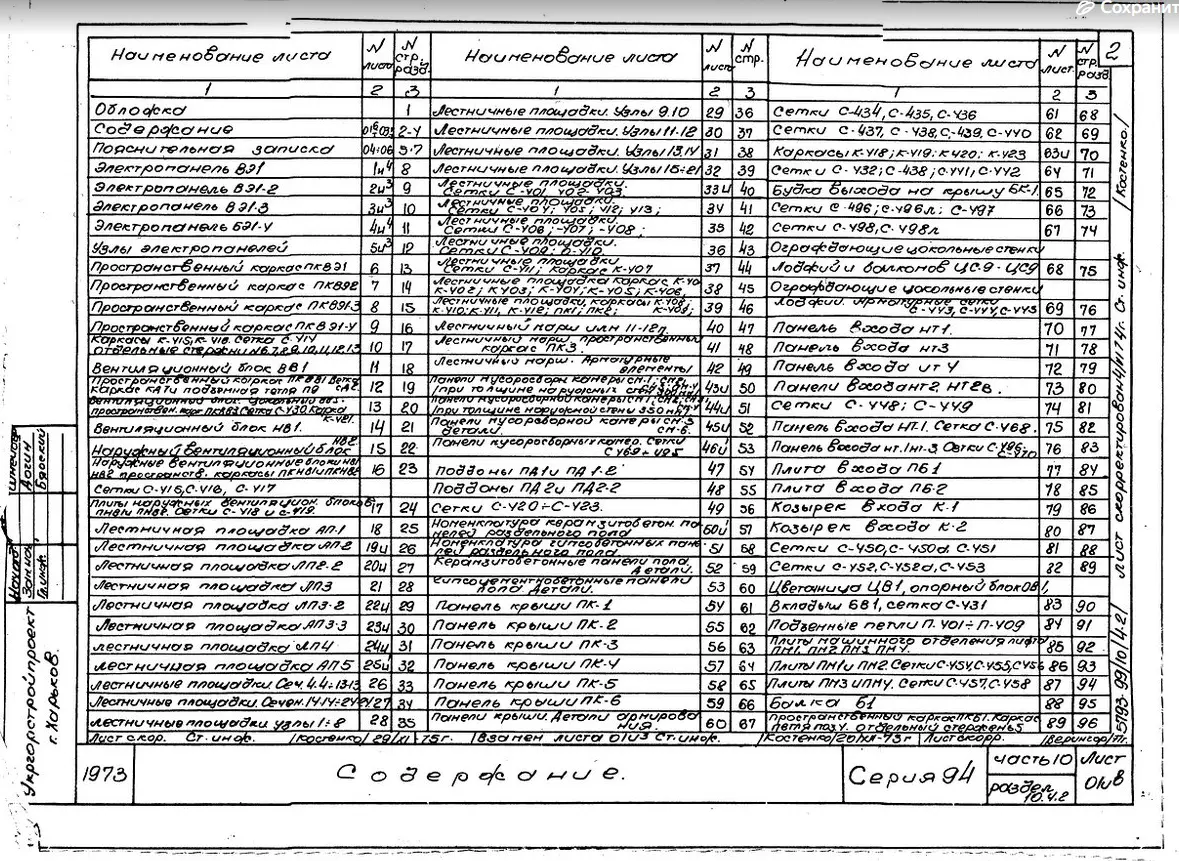 Сохранит
2
Наименование листа | N листа | N стр. разд. | Наименование листа | N листа | N стр. | Наименование листа | N лист. | N стр. разд
1 | 2 | 3 | 1 | 2 | 3 | 1 | 2 | 3
Обложка | 1
Содержание | 2-4
Пояснительная записка | 04÷06 | 5-7
Электропанель ВЭ1 | 1и⁴ | 8
Электропанель ВЭ1-2 | 2и³ | 9
Электропанель ВЭ1-3 | 3и³ | 10
Электропанель БЭ1-4 | 4и⁴ | 11
Узлы электропанелей | 5и³ | 12
Пространственный каркас ПКВЭ1 | 6 | 13
Пространственный каркас ПКВЭ2 | 7 | 14
Пространственный каркас ПКВЭ1-3 | 8 | 15
Пространственный каркас ПКВЭ1-4 | 9 | 16
Каркасы К-415, К-416. Сетка С-414
Отдельные стержни N6,7,8,9,10,11,12,13 | 10 | 17
Вентиляционный блок ВВ1 | 11 | 18
12 | 19
13 | 20
Вентиляционный блок НВ1. | 14 | 21
Наружный вентиляционный блок НВ2. | 15 | 22
Наружные вентиляционные блоки НВ1
НВ2 пространств. каркасы ПКНВ1 и ПКНВ2 | 16 | 23
Сетки С-415, С-416, С-417
Плиты наружных вентиляцион. блоков
ПНВ1 и ПНВ2. Сетки С-418 и С-419. | 17 | 24
Лестничная площадка ЛП.1 | 18 | 25
Лестничная площадка ЛП2 | 19и | 26
Лестничная площадка ЛП2-2 | 20и | 27
Лестничная площадка ЛП3 | 21 | 28
Лестничная площадка ЛП3-2 | 22и | 29
Лестничная площадка ЛП3-3 | 23и | 30
Лестничная площадка ЛП4 | 24и | 31
Лестничная площадка ЛП5 | 25и | 32
Лестничные площадки. Сеч. 4.4÷13-13 | 26 | 33
Лестничные площадки. Сечен. 14.14÷24-24 | 27 | 34
Лестничные площадки узлы 1÷8 | 28 | 35
Лестничные площадки. Узлы 9.10 | 29 | 36
Лестничные площадки. Узлы 11-12 | 30 | 37
Лестничные площадки. Узлы 13,14 | 31 | 38
Лестничные площадки. Узлы 15÷21 | 32 | 39
Лестничные площадки.
Сетки С-401, 402, 403 | 33и | 40
Лестничные площадки.
Сетки С-404; 405; 412; 413; | 34 | 41
Лестничные площадки.
Сетки С-406; -407; -408; | 35 | 42
Лестничные площадки.
Сетки С-409; С-410 | 36 | 43
Лестничные площадки
Сетки С-411; каркас К-407 | 37 | 44
Лестничные площадки каркас К-40
К-402; К403; К-404; К-405; К-406, | 38 | 45
Лестничные площадки, каркасы К-408,
К-410; К-411, К-412; ПК1; ПК2; К-409; | 39 | 46
Лестничный марш ИЛМ 11-12п. | 40 | 47
Лестничный марш, пространственный
каркас ПК3. | 41 | 48
Лестничный марш. Арматурные
элементы | 42 | 49
43и | 50
44и | 51
Панели мусоросборной камеры СМ-5
СМ-6. детали. | 45и | 52
Панели мусоросборных камер. Сетки
С469 ÷ 495 | 46и | 53
Поддоны ПД1 и ПД1-2 | 47 | 54
Поддоны ПД2 и ПД2-2 | 48 | 55
Сетки С-420 ÷ С-423. | 49 | 56
Номенклатура керамзитобетон. па
нелей раздельного пола | 50и | 57
Номенклатура гипсобетонных пане
лей раздельного пола. | 51 | 58
Керамзитобетонные панели пола.
Детали. | 52 | 59
Гипсоцементнобетонные панели
пола. Детали. | 53 | 60
Панель крыши ПК-1 | 54 | 61
Панель крыши ПК-2 | 55 | 62
Панель крыши ПК-3 | 56 | 63
Панель крыши ПК-4 | 57 | 64
Панель крыши ПК-5 | 58 | 65
Панель крыши ПК-6 | 59 | 66
Панели крыши. Детали армирова
ния. | 60 | 67
Сетки С-434, С-435, С-436 | 61 | 68
Сетки С-437, С-438, С-439, С-440 | 62 | 69
Каркасы К-418; К-419; К420; К-423 | 63и | 70
Сетки С-432; С-438; С-441, С-442 | 64 | 71
Будка выхода на крышу БК-1 | 65 | 72
Сетки С-496; С-496л; С-497 | 66 | 73
Сетки С-498, С-498л | 67 | 74
Ограждающие цокольные стенки
Лоджий и балконов ЦС.9-ЦС9 | 68 | 75
Ограждающие цокольные стенки
Лоджий. Арматурные сетки
С-443, С-444, С-445 | 69 | 76
Панель входа НТ1. | 70 | 77
Панель входа НТ3 | 71 | 78
Панель входа ИТ4 | 72 | 79
Панели входа НТ2 НТ2в. | 73 | 80
Сетки С-448; С-449 | 74 | 81
Панель входа НТ.1. Сетка С-468. | 75 | 82
76 | 83
Плита входа ПБ1 | 77 | 84
Плита входа ПБ-2 | 78 | 85
Козырек входа К-1 | 79 | 86
Козырек входа К-2 | 80 | 87
Сетки С-450, С-450а, С-451 | 81 | 88
Сетки С-452, С-452а, С-453 | 82 | 89
Цветочница ЦВ1, опорный блок ОВ1,
Вкладыш БВ1, сетка С-431 | 83 | 90
Подъемные петли П-401÷П-409 | 84 | 91
Плиты машинного отделения лифта
ПМ1, ПМ2, ПМ3, ПМ4. | 85 | 92
Плиты ПМ1 и ПМ2 Сетки С-454, С-455, С456 | 86 | 93
Плиты ПМ3 и ПМ4. Сетки С-457, С-458 | 87 | 94
Балка Б1 | 88 | 95
Пространственный каркас ПКБ1. Каркас
петля поз.4. отдельный стержень 5 | 89 | 96
Лист скор. Ст. инж. /Костенко/ 29/XI-75г Взамен листа 01И3 Ст. инж. /Костенко/ 20/XII-73г Лист скорр.
1973
Содержание.
Серия 94
часть 10
раздел 10.4.2
Лист
01и8
Укргорстройпроект
г. Харьков.
5783-99/10/4.2/ Лист скорректирован 4/XI 74г. Ст. инж. /Костенко/